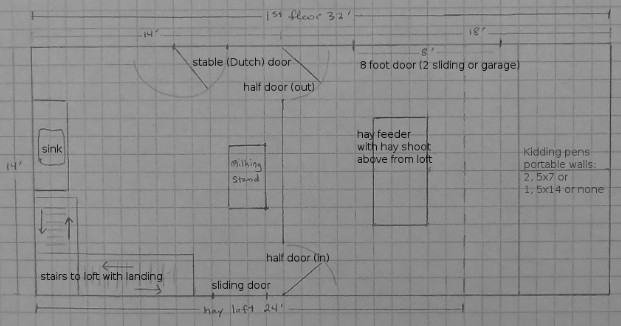 1st floor 32'
14'
18'
stable (Dutch) door
8'
8 foot door (2 sliding or garage)
half door (out)
hay feeder
with hay shoot
above from loft
sink
Milking
Stand
Kidding pens
portable walls:
2, 5x7 or
1, 5x14 or none
14'
half door (in)
stairs to loft with landing
sliding door
hay loft 24'